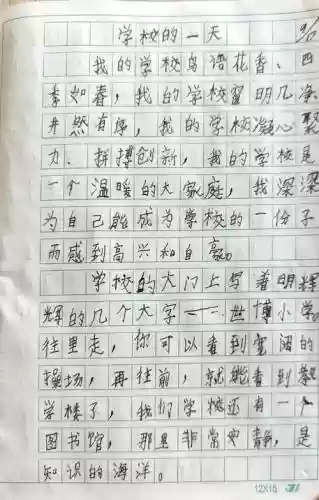 学校的一天
我的学校鸟语花香、四
季如春，我的学校窗明几净
井然有序，我的学校凝心聚
力、拼搏创新，我的学校是
一个温暖的大家庭，我深深
为自己能成为学校的一份子
而感到高兴和自豪。
学校的大门上写着明辉
辉的几个大字——世博小学。
往里走，你可以看到宽阔的
操场，再往前，就能看到教
学楼了，我们学校还有一个
图书馆，那里非常安静，是
知识的海洋。
12X15